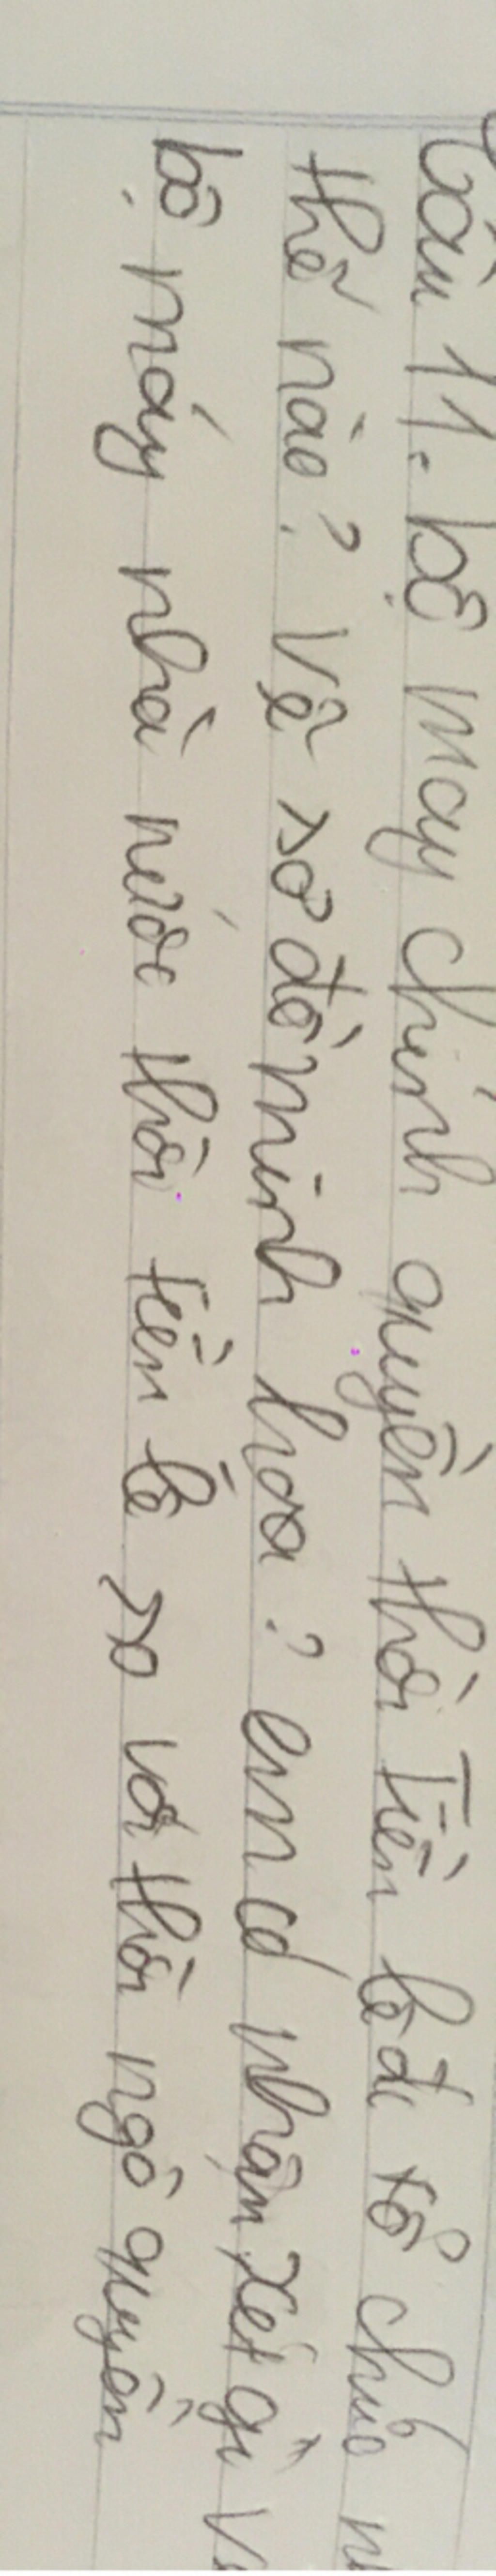 Câu 11. bộ máy chính quyền thời Tiền lê đc tổ chức
thế nào? Vẽ sơ đồ minh hoạ? em có nhận xét gì
bộ máy nhà nước thời tiền lê so với thời ngô quyền